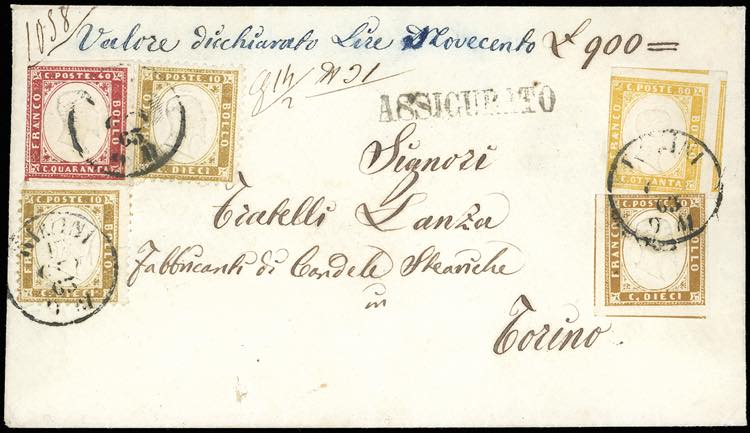 1058
Valore dicchiarato Lire Novecento £ 900=
ASSICURATO
Signori
Fratelli Lanza
Fabbricanti di Candele Steariche
in
Torino
C. POSTE. 40
FRANCO
BOLLO
C. QUARANTA
C. POSTE. 10
FRANCO
BOLLO
C. DIECI
C. POSTE 10
FRANCO
BOLLO
C. POSTE. 80
FRANCO
BOLLO
C. OTTANTA
C. POSTE. 10
FRANCO
BOLLO
C. DIECI